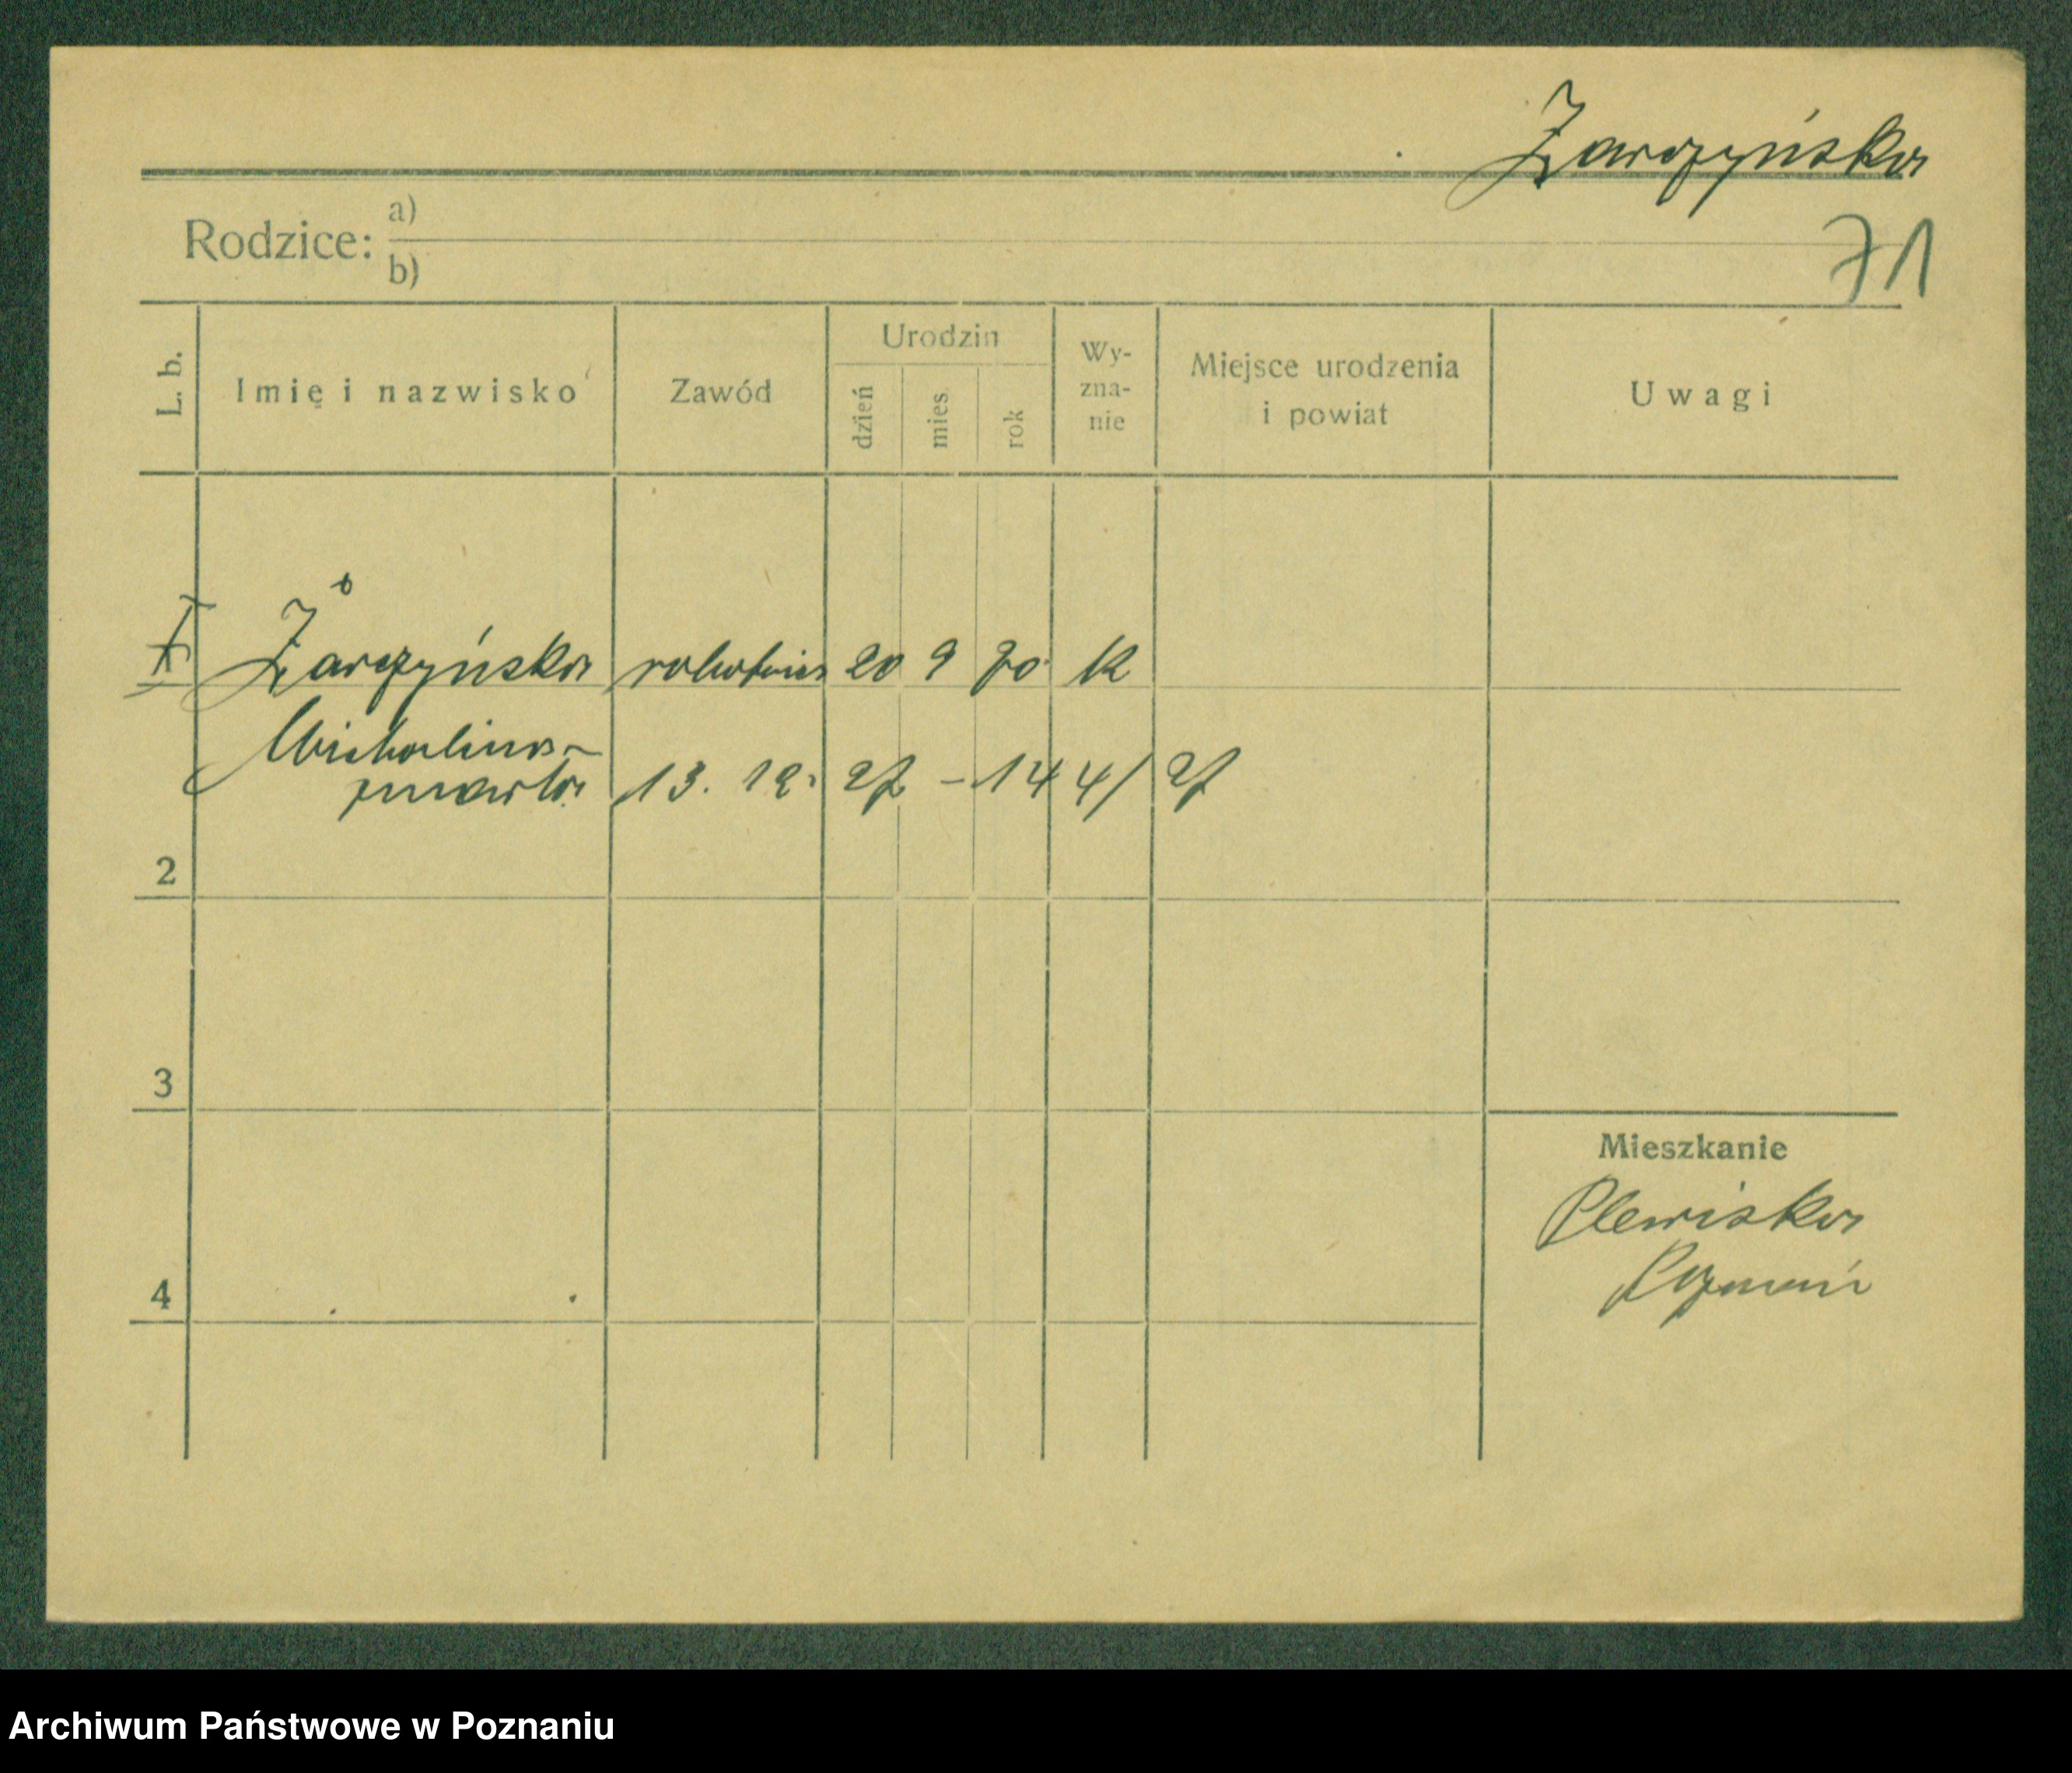 Żarczyńska
Rodzice: a)
b)
71
L. b.
Imię i nazwisko
Zawód
Urodzin
dzień
mies.
rok
Wy-
zna-
nie
Miejsce urodzenia
i powiat
Uwagi
Żarczyńska robotnica 20 9 70 K
Michalina
zmarła 13. 12. 27 - 144/27
2
3
4
Mieszkanie
Plewiska
Poznań
Archiwum Państwowe w Poznaniu